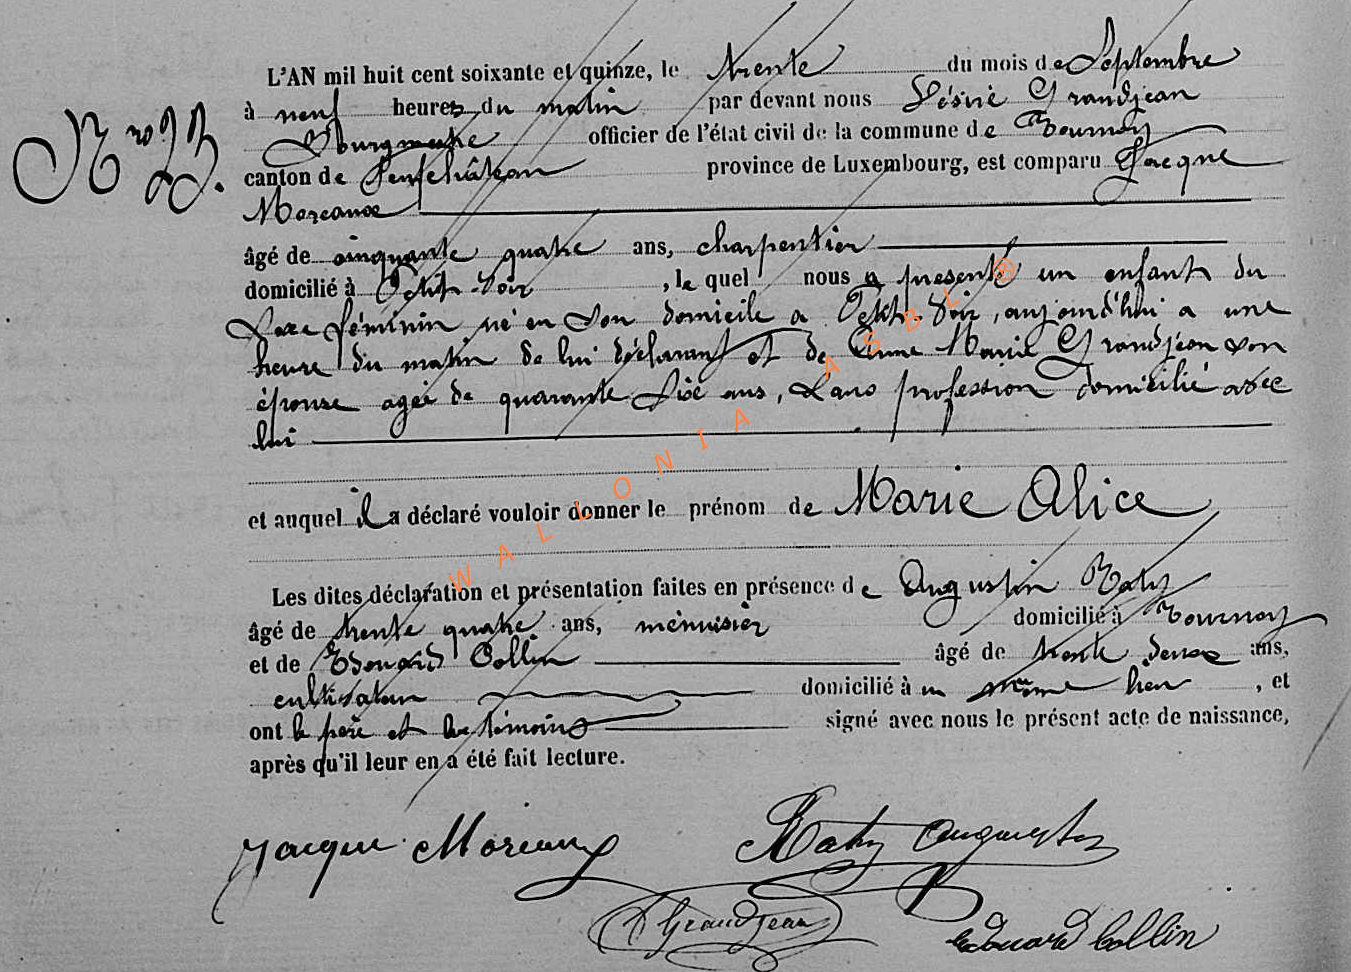 L'AN mil huit cent soixante et quinze, le trente du mois de Septembre
à neuf heures du matin par devant nous Désiré Grandjean
Bourgmestre officier de l'état civil de la commune de Tournay
Nro 23.
canton de Neufchâteau province de Luxembourg, est comparu Jacque
Moreaux
âgé de cinquante quatre ans, charpentier
domicilié à Petit-Voir, le quel nous a presenté un enfant du
Sexe féminin né en Son domicile a Petit-Voir, aujourd'hui a une
heure du matin de lui déclarant et de Anne Marie Grandjean son
épouse agée de quarante Six ans, Sans profession domicilié avec
lui
et auquel il a déclaré vouloir donner le prénom de Marie Alice
Les dites déclaration et présentation faites en présence de Augustin Mathy
âgé de trente quatre ans, ménuisier domicilié à Tournay
et de Edouard Collin âgé de trente deux ans,
cultivateur domicilié à u même lieu, et
ont le père et les témoins signé avec nous le présent acte de naissance,
après qu'il leur en a été fait lecture.
Jacque Moreaux Mathy augustin
DGrandjean Edouard Collin
WALLONIA ASBL ®